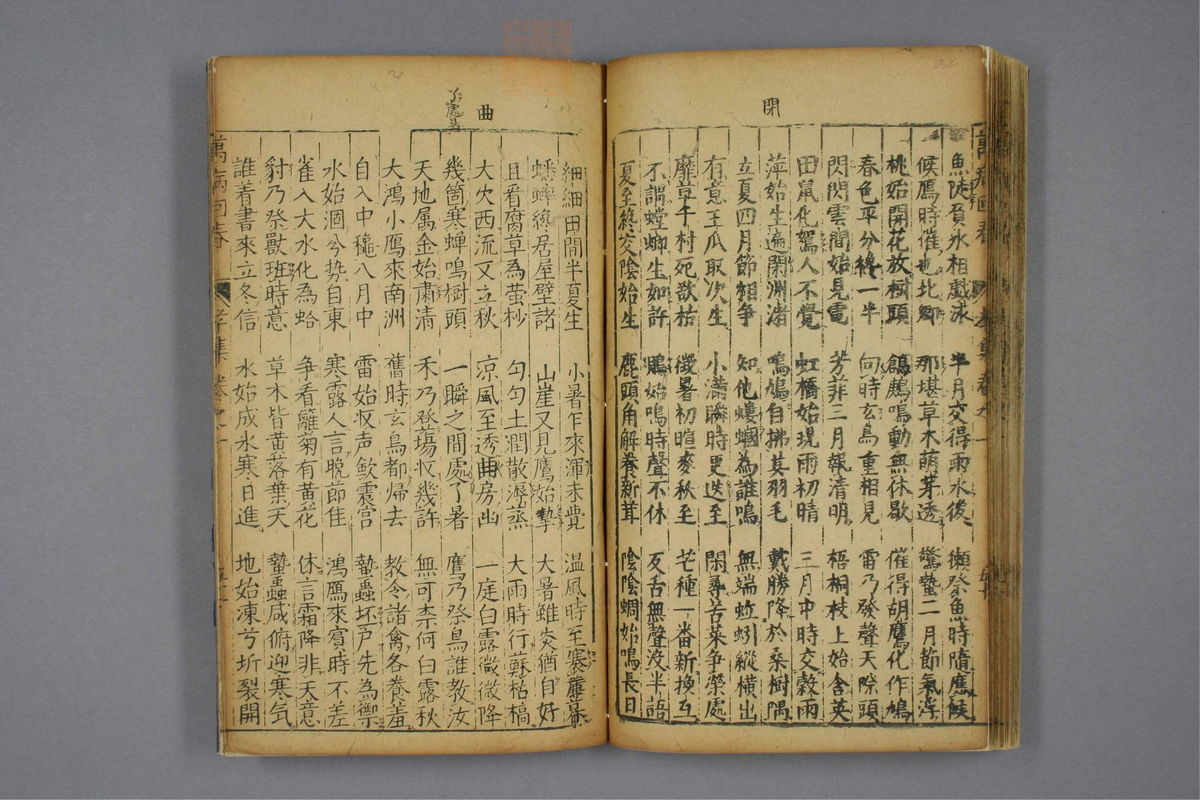 閉
魚陟負氷相戲泳 半月交得雨水後 獺祭魚時隨應候
候鴈時催也北鄉 那堪草木萌芽透 驚蟄二月節氣浮
桃始開花放樹頭 鶬鶊鳴動無休歇 催得胡鷹化作鳩
春色平分纔一半 向時玄鳥重相見 雷乃發聲天際頭
閃閃雲間始見電 芳菲三月報清明 梧桐枝上始含英
田鼠化鴽人不覺 虹橋始現雨初晴 三月中時交穀雨
萍始生遍閑淵渚 鳴鳩自拂其羽毛 戴勝降於桑樹隅
立夏四月節相爭 知他螻蟈為誰鳴 無端蚯蚓縱橫出
有意王瓜取次生 小滿瞬時更迭至 閑尋苦菜爭榮處
靡草千村死欲枯 微暑初暄麥秋至 芒種一番新換互
不謂螳螂生如許 鵙始鳴時聲不休 反舌無聲沒半語
夏至終交陰始生 鹿頭角解養新茸 陰陰蜩始鳴長日
曲
細細田間半夏生 小暑乍來渾未覺 溫風時至褰簾幕
蟋蟀纔居屋壁諸 山崖又見鷹始摯 大暑雖炎猶自好
且看腐草為螢杪 勻勻土潤散溽蒸 大雨時行蘇枯槁
大火西流又立秋 凉風至透曲房幽 一庭白露微微降
幾箇寒蟬鳴樹頭 一瞬之間處了暑 鷹乃祭鳥誰教汝
天地属金始肅清 禾乃登塲收幾許 無可柰何白露秋
大鴻小鴈來南洲 舊時玄鳥都歸去 教令諸禽各養羞
自入中穐八月中 雷始收声歛震宫 蟄蟲坯戸先為禦
水始涸兮势自東 寒露人言晚節佳 鴻鴈來賓時不差
雀入大水化為蛤 争看籬菊有黄花 休言霜降非天意
豺乃祭獸班時意 草木皆黄落葉天 蟄蟲咸俯迎寒气
誰着書來立冬信 水始成氷寒日進 地始凍兮坼裂開
萬病回春